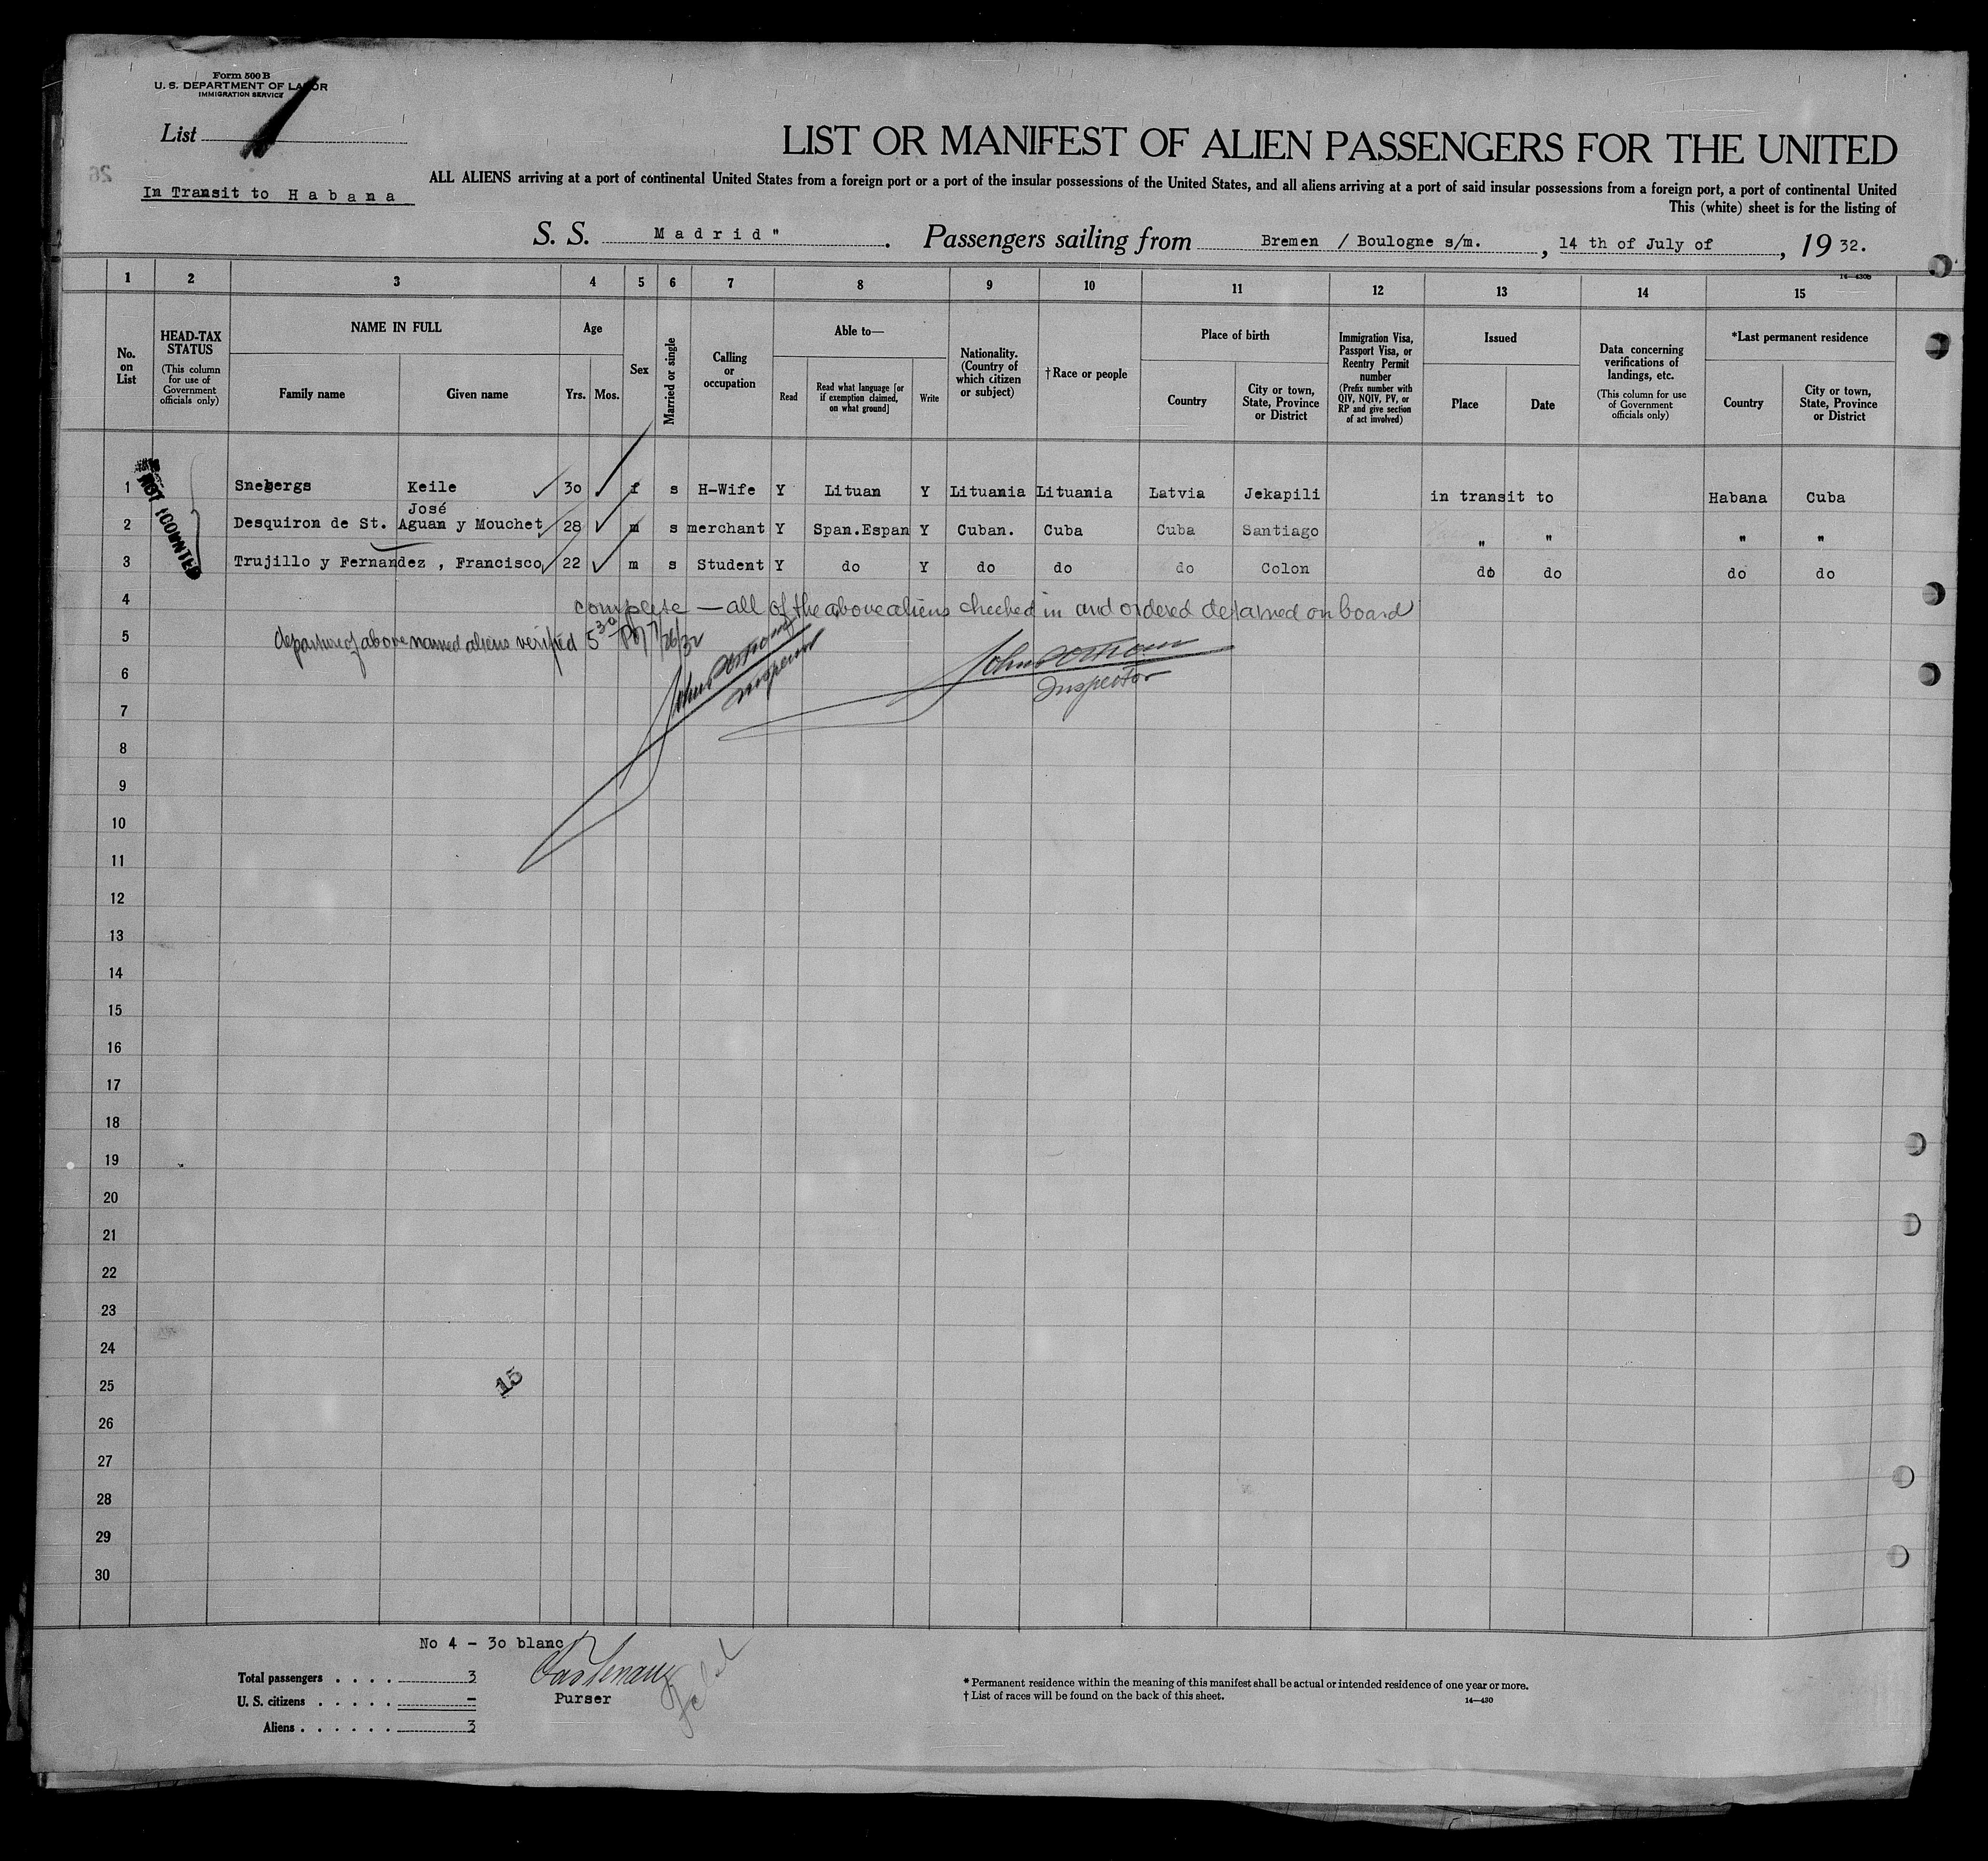 Form 500 B
U. S. DEPARTMENT OF LABOR
IMMIGRATION SERVICE
List
26
In Transit to Habana
LIST OR MANIFEST OF ALIEN PASSENGERS FOR THE UNITED
ALL ALIENS arriving at a port of continental United States from a foreign port or a port of the insular possessions of the United States, and all aliens arriving at a port of said insular possessions from a foreign port, a port of continental United
This (white) sheet is for the listing of
S. S. Madrid". Passengers sailing from Bremen / Boulogne s/m., 14 th of July of, 19 32.
14—430b
1 2 3 4 5 6 7 8 9 10 11 12 13 14 15
No. on List
HEAD-TAX STATUS (This column for use of Government officials only)
NAME IN FULL
Family name Given name
Age
Yrs. Mos.
Sex
Married or single
Calling or occupation
Able to—
Read Read what language [or if exemption claimed, on what ground] Write
Nationality. (Country of which citizen or subject)
†Race or people
Place of birth
Country City or town, State, Province or District
Immigration Visa, Passport Visa, or Reentry Permit number (Prefix number with QIV, NQIV, PV, or RP and give section of act involved)
Issued
Place Date
Data concerning verifications of landings, etc. (This column for use of Government officials only)
*Last permanent residence
Country City or town, State, Province or District
NOT COUNTED
1 Snebergs Keile 30 f s H-Wife Y Lituan Y Lituania Lituania Latvia Jekapili in transit to Habana Cuba
José
2 Desquiron de St. Aguan y Mouchet 28 m s merchant Y Span.Espan Y Cuban. Cuba Cuba Santiago " " " "
3 Trujillo y Fernandez , Francisco 22 m s Student Y do Y do do do Colon do do do do
4 complete — all of the above aliens checked in and ordered detained on board
5 departure of above named aliens verified 5 30 PM 7/26/32
6
Inspector
Inspector
7
8
9
10
11
12
13
14
15
16
17
18
19
20
21
22
23
24
25
15
26
27
28
29
30
No 4 - 30 blanc
Total passengers . . . . 3
U. S. citizens . . . . . —
Aliens . . . . . . 3
Purser
* Permanent residence within the meaning of this manifest shall be actual or intended residence of one year or more.
† List of races will be found on the back of this sheet.
14—430